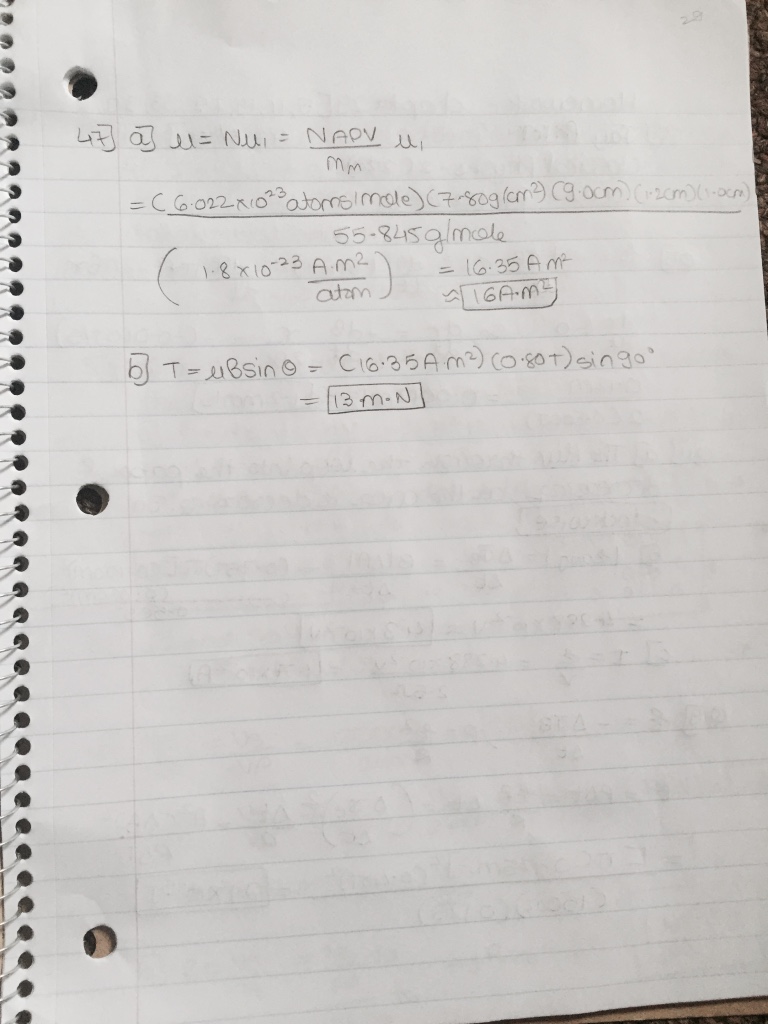 29
47] a] μ = Nμ₁ = NAρV/Mm μ₁
= (6.022×10²³ atoms/mole)(7.80g/cm²)(9.0cm)(1.2cm)(1.0cm)
55.845g/mole
(1.8×10⁻²³ A.m²/atom) = 16.35 A m²
≈ 16A.m²
b] T = μBsinθ = (16.35A.m²)(0.80T)sin90°
= 13 m.N